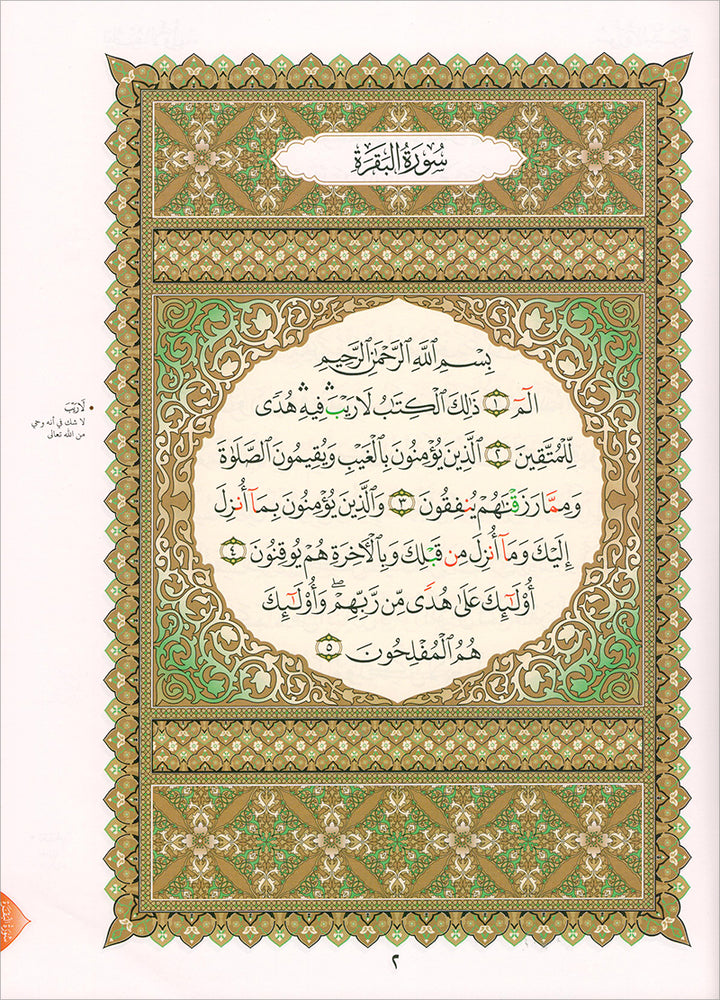 سُورَةُ الْبَقَرَةِ
بِسْمِ ٱللَّهِ ٱلرَّحْمَٰنِ ٱلرَّحِيمِ
الٓمٓ ١ ذَٰلِكَ ٱلْكِتَٰبُ لَا رَيْبَۛ فِيهِۛ هُدًى
لِّلْمُتَّقِينَ ٢ ٱلَّذِينَ يُؤْمِنُونَ بِٱلْغَيْبِ وَيُقِيمُونَ ٱلصَّلَوٰةَ
وَمِمَّا رَزَقْنَٰهُمْ يُنفِقُونَ ٣ وَٱلَّذِينَ يُؤْمِنُونَ بِمَآ أُنزِلَ
إِلَيْكَ وَمَآ أُنزِلَ مِن قَبْلِكَ وَبِٱلْءَاخِرَةِ هُمْ يُوقِنُونَ ٤
أُو۟لَٰٓئِكَ عَلَىٰ هُدًى مِّن رَّبِّهِمْۖ وَأُو۟لَٰٓئِكَ
هُمُ ٱلْمُفْلِحُونَ ٥
• لَا رَيْبَ
لا شك في أنه وحي
من الله تعالى
سورة البقرة
٢